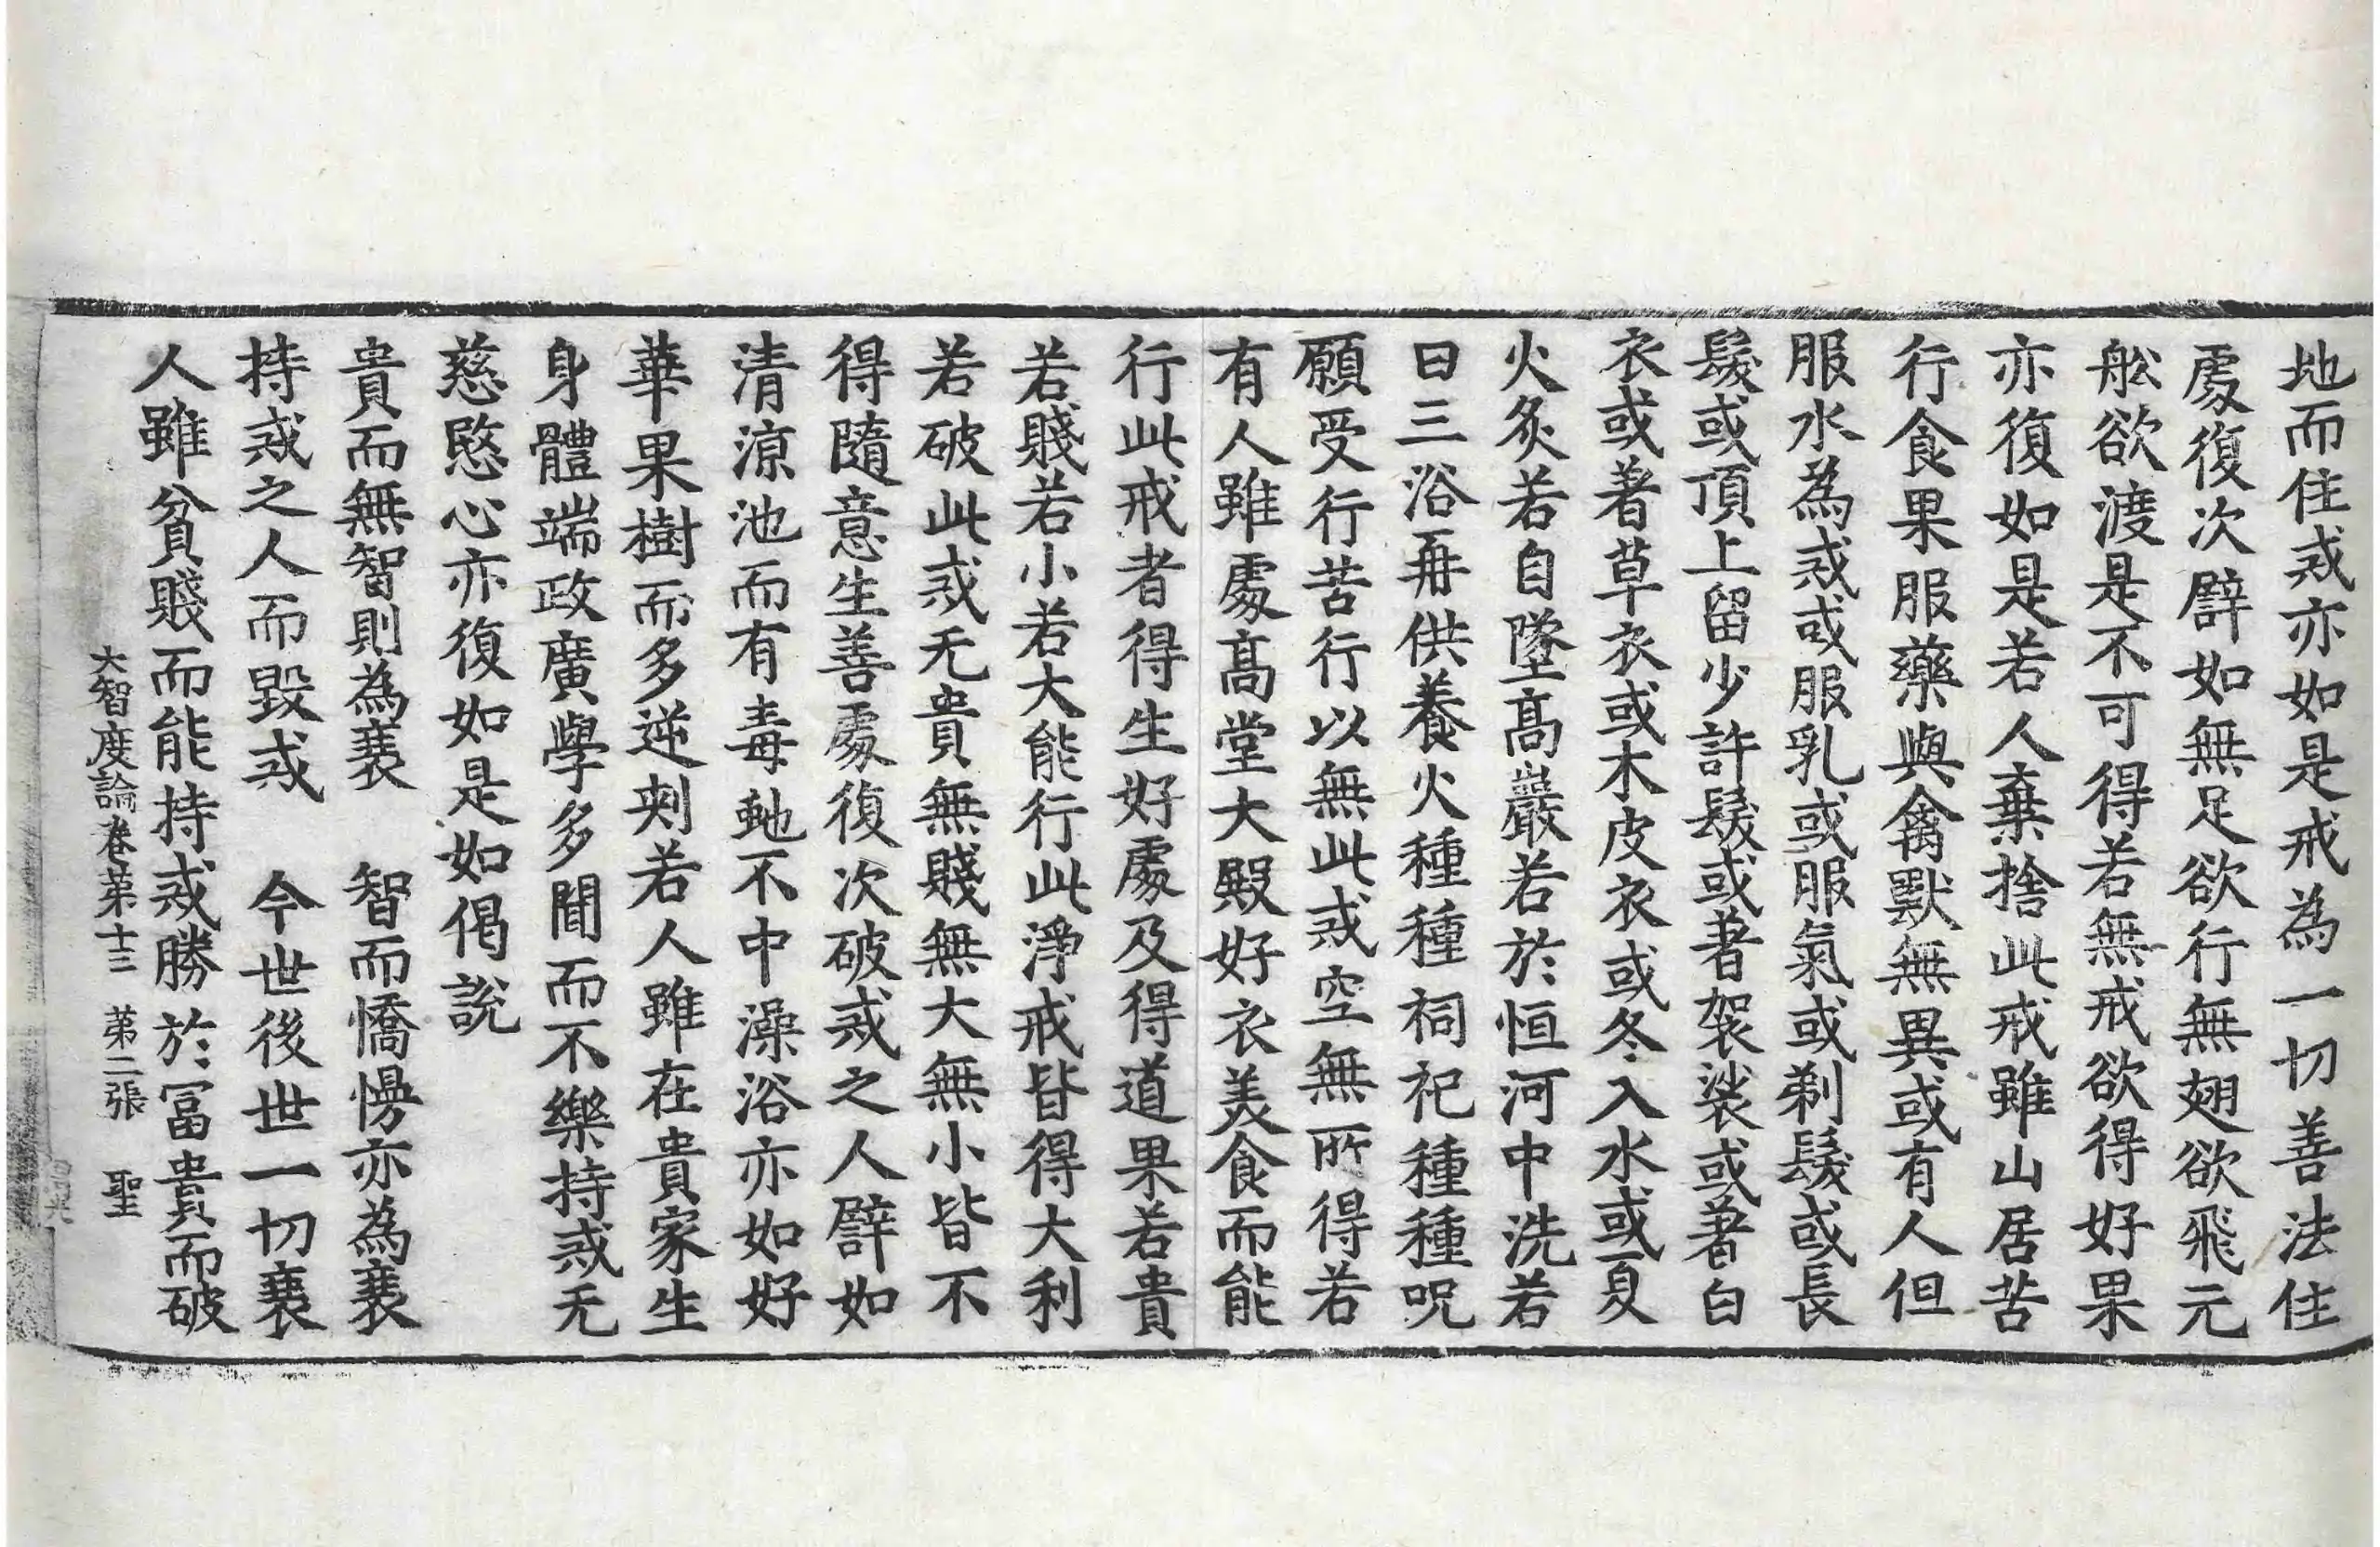 地而住戒亦如是戒為一切善法住
處復次譬如無足欲行無翅欲飛无
舩欲渡是不可得若無戒欲得好果
亦復如是若人棄捨此戒雖山居苦
行食果服藥與禽獸無異或有人但
服水為戒或服乳或服氣或剃髮或長
髮或頂上留少許髮或著袈裟或著白
衣或著草衣或木皮衣或冬入水或夏
火炙若自墜髙巖若於恒河中洗若
日三浴再供養火種種祠祀種種呪
願受行苦行以無此戒空無所得若
有人雖處髙堂大殿好衣美食而能
行此戒者得生好處及得道果若貴
若賤若小若大能行此淨戒皆得大利
若破此戒无貴無賤無大無小皆不
得隨意生善處復次破戒之人譬如
清涼池而有毒虵不中澡浴亦如好
華果樹而多逆刺若人雖在貴家生
身體端政廣學多聞而不樂持戒无
慈愍心亦復如是如偈說
貴而無智則為衰　智而憍慢亦為衰
持戒之人而毀戒　今世後世一切衰
人雖貧賤而能持戒勝於冨貴而破
大智度論卷第十三　第二張　聖